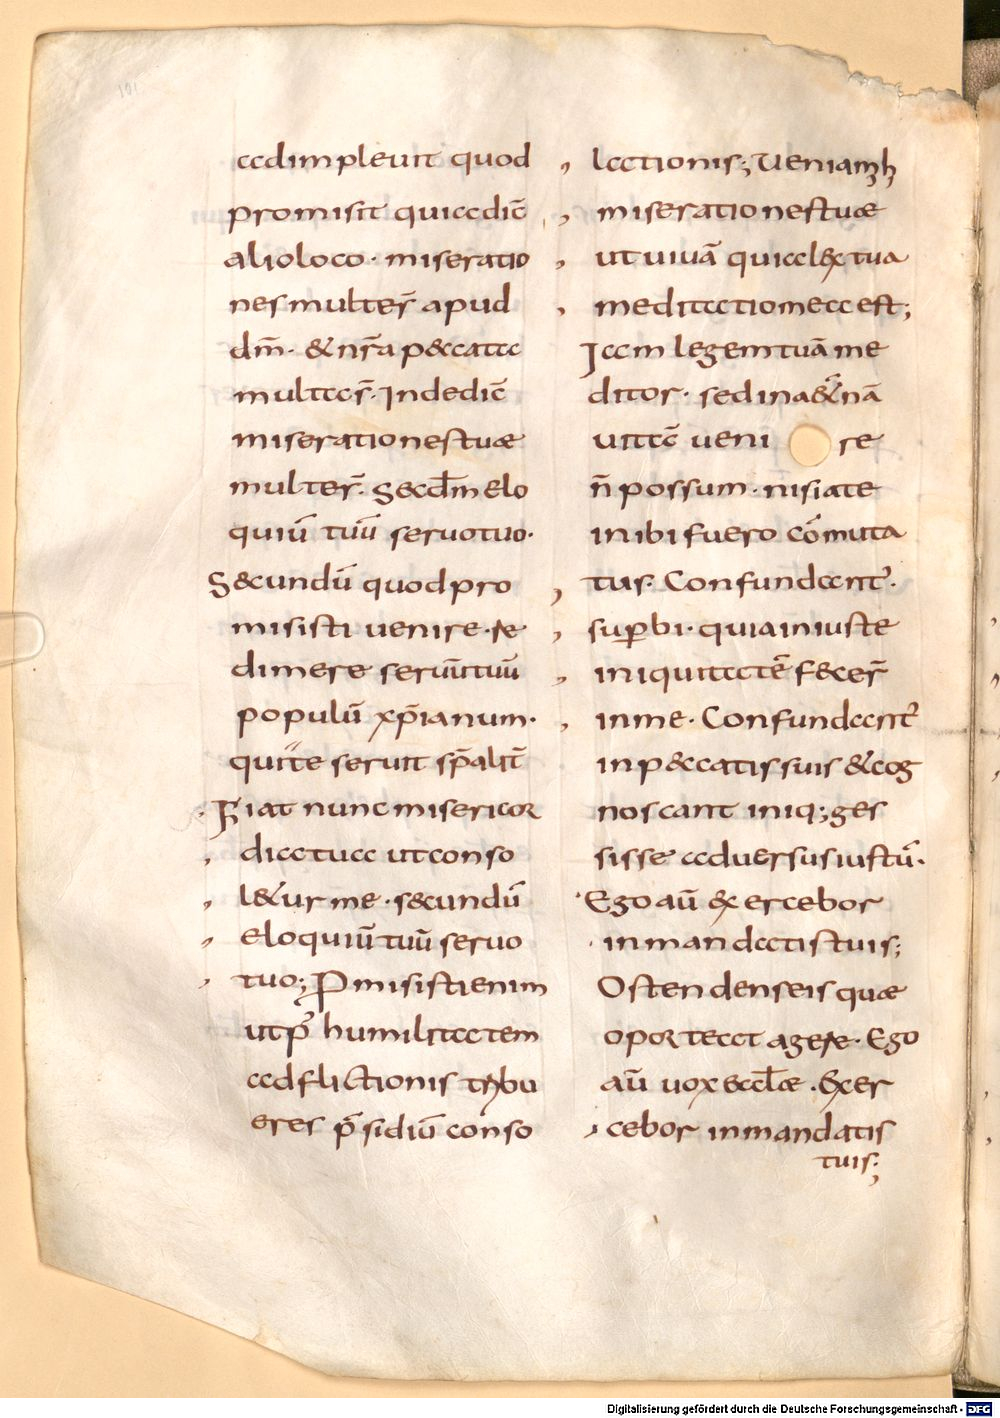 adimpleuit quod
promisit quia dic̄
alio loco · miseratio
nes multe sr̄ apud
dm̄ · & nr̄a peccata
multa sr̄ · Inde dic̄
miserationes tuae
multe sr̄ · Secd̄m elo
quiū tuū seruo tuo ·
Secundū quod pro
misisti uenire · re
dimere seruū tuū
populū xp̄ianum ·
qui te seruit sp̄alit̄
Fiat nunc misericor
dia tua ut conso
l&ur me · secundū
eloquiū tuū seruo
tuo; Promisisti enim
ut p̄ humilitatem
adflictionis tribu
eres p̄sidiū conso
lationis; Veniant m̄
miserationes tuae
ut uiuā quia lex tua
meditatio mea est;
Iam legem tuā me
ditor · sed in aet̄nā
uitā uenire
n̄ possum · nisi a te
inibi fuero cōmuta
tus · Confundant̄ ·
sup̄bi · quia iniuste
iniquitatē fecer̄
in me · Confundant̄
in peccatis suis & cog
noscant iniq; ges
sisse aduersus iustū ·
Ego aū exercebor
in mandatis tuis;
Ostendens eis quae
oportet agere · Ego
aū uox eccl̄ae · Exer
cebor in mandatis
tuis;
Digitalisierung gefördert durch die Deutsche Forschungsgemeinschaft - DFG